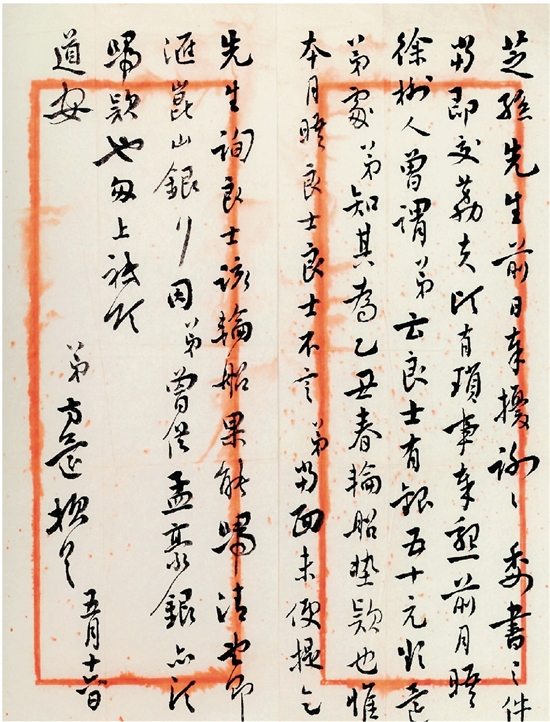 芝孫先生前日奉擾謝謝委書之件
当即交荔夫收有瑣事奉懇前月晤
徐樹人曾謂弟云良士有銀五十元於
弟處弟知其為乙丑春輪船墊款也惟
本月晤良士良士不言弟当面未便提乞
先生詢良士該輪船果能歸清也即
滙崑山銀行因弟曾借孟豪銀亦
歸款也匆上祗頌
道安
弟方還頓首五月十六日